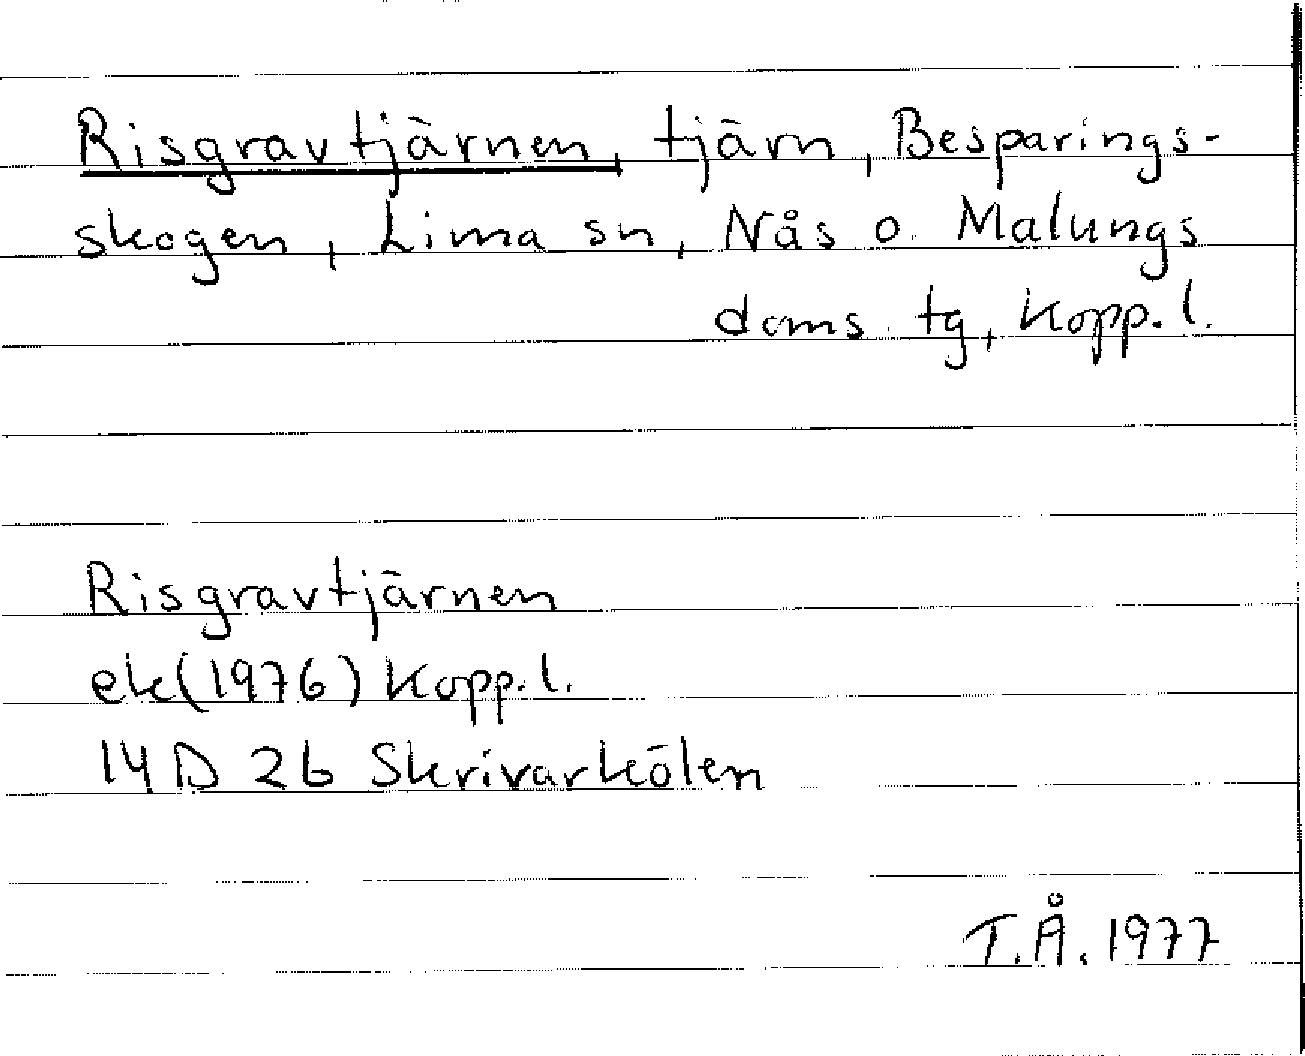 Risgravtjärnen, tjärn, Besparings-
skogen, Lima sn, Nås o. Malungs
doms. tg, Kopp. l.
Risgravtjärnen
ek(1976) Kopp. l.
14 D 2b Skrivarkölen
T.Å. 1977